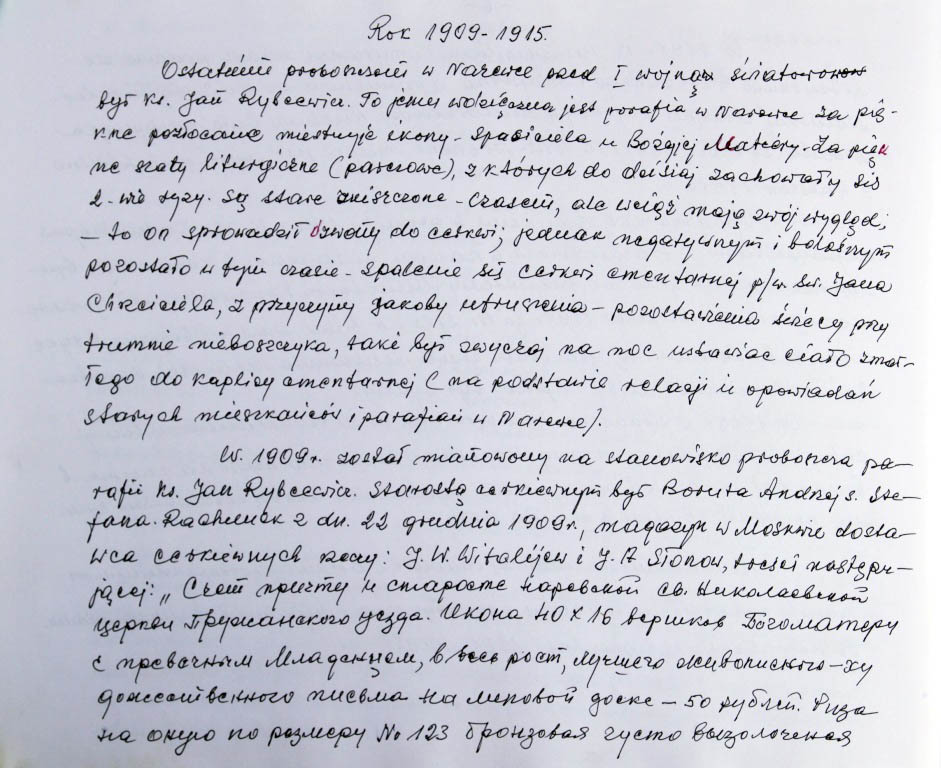 Rok 1909-1915
Ostatnim proboszczem w Narewce przed I wojną światową
był ks. Jan Rybcewicz. To jemu wdzięczna jest parafia w Narewce za pię-
kne pozłacane miestnyje ikony - Spasiciela u Bożajej Matiery. Za piękn
ne szaty liturgiczne (parczowe), z których do dzisiaj zachowały się
2-wie ryzy. Są stare zniszczone - czasem, ale wciąż mają swój wygląd;
- to on sprowadził dzwony do cerkwi; jednak negatywnym i bolesnym
pozostało w tym czasie - spalenie się cerkwi cmentarnej p/w. św. Jana
Chrzciciela, z przyczyny jakoby - pozostawienia świecy przy
trumnie nieboszczyka, taki był zwyczaj na noc ustawiać ciało zmar-
łego do kaplicy cmentarnej (na podstawie relacji i opowiadań
starych mieszkańców i parafian w Narewce).
W. 1909r. został mianowony na stanowisko proboszcza pa-
rafii ks. Jan Rybcewicz. Starostą cerkiewnym był Boruta Andrzej s. Ste-
fana. Rachunek z dn. 22 grudnia 1909r., magazyn w Moskwie dosta-
wca cerkiewnych rzeczy: J. W. Witalijew i J. A Słonow, treści następu-
jącej: „Счет причту и старосте наревской св. Николаевской
церкви Пружанского уезда. Икона 40 х 16 вершков Богоматеру
с превечным Младенцем, в весь рост, лучшего живописного-ху
дожественного письма на липовой доске - 50 рублей. Риза
на оную по размеру № 123 бронзовая густо вызолоченая